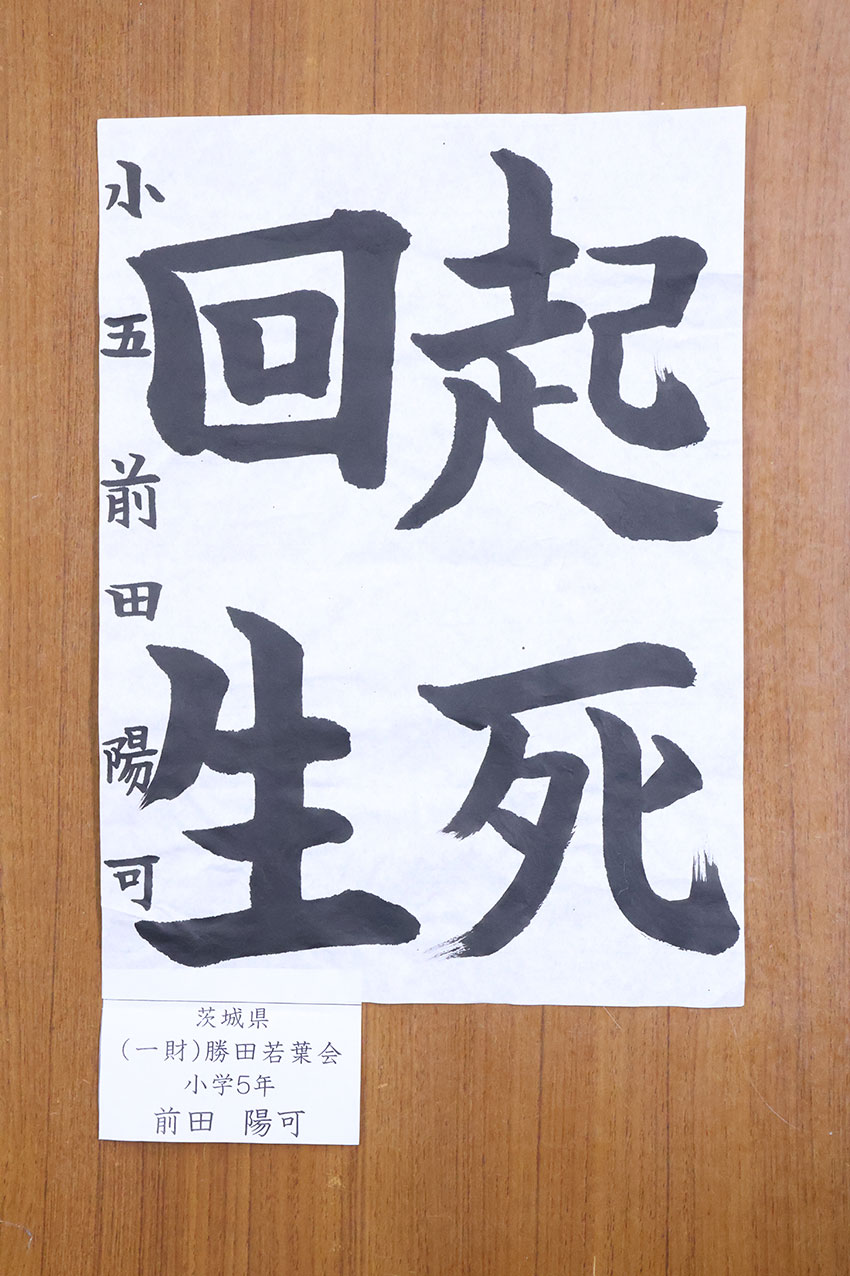 起死
回生
小五 前田陽可
茨城県
(一財)勝田若葉会
小学5年
前田 陽可